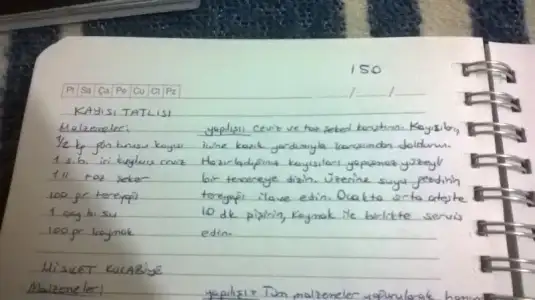 150
Pt Sa Ça Pe Cu Ct Pz
/ /
KAYISI TATLISI
Malzemeler: yapılışı Ceviz ve toz şekeri karıştırın. Kayısıların
1/2 kg gün kurusu kayısı içine kaşık yardımıyla karışımdan doldurun.
1 s.b. iri ceviz Hazırladığınız kayısıları yapışmaz yüzeyli
1 11 toz şeker bir tencereye dizin. Üzerine suyu
100 gr tereyağı tereyağı ilave edin. Ocakta orta ateşte
1 çay b. su 10 dk pişirin, Kaymak ile birlikte servis
100 gr kaymak edin.
KURABİYE
Malzemeler: yapılışı: Tüm malzemeler